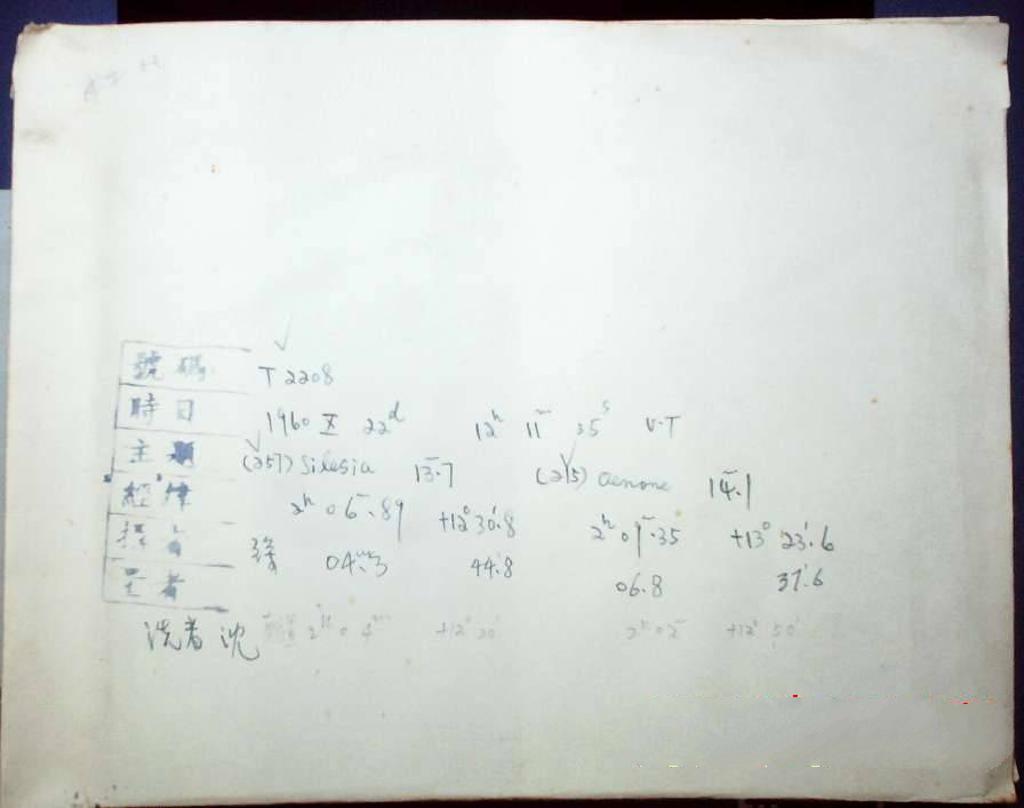 號碼 T 2208
時日 1960 X 22d 12h 11m 35s U.T
主題 (257) Silesia 13m.7 (215) Oenone 14m.1
經緯 2h 06m.89 +12° 30'.8 2h 01m.35 +13° 23'.6
04m.3 44'.8 06.8 37'.6
者
洗者 沈 2h 04m +12° 20' 2h 02m +12° 50'